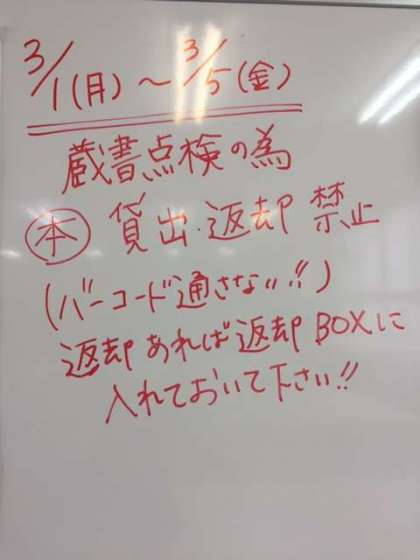 3/1(月)~3/5(金)
蔵書点検の為
本 貸出・返却 禁止
(バーコード通さない!!)
返却あれば返却BOXに
入れておいて下さい!!